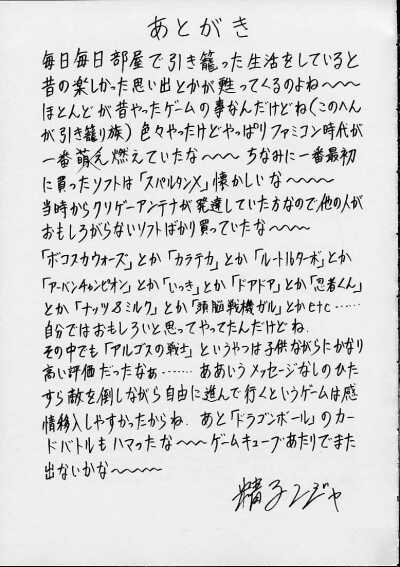 あとがき
毎日毎日部屋で引き籠った生活をしていると
昔の楽しかった思い出とかが甦ってくるのよね〜〜
ほとんどが昔やったゲームの事なんだけどね(このへん
が引き籠り族)色々やったけどやっぱりファミコン時代が
一番萌え燃えていたな〜〜〜ちなみに一番最初
に買ったソフトは「スパルタンX」懐かしいな〜〜〜〜
当時からクソゲーアンテナが発達していた方なので他の人が
おもしろがらないソフトばかり買っていたな〜〜〜
「ボコスカウォーズ」とか「カラテカ」とか「ルート16ターボ」とか
「アーバンチャンピオン」とか「いっき」とか「ドアドア」とか「忍者くん」
とか「ナッツ&ミルク」とか「頭脳戦機ガル」とかetc……
自分ではおもしろいと思ってやってたんだけどね.
その中でも「アルゴスの戦士」というやつは子供ながらにかなり
高い評価だったなぁ……. ああいうメッセージなしのひた
すら敵を倒しながら自由に進んで行くというゲームは感
情移入しやすかったからね. あと「ドラゴンボール」のカー
ドバトルもハマったな〜〜ゲームキューブあたりでまた
出ないかな〜〜〜〜